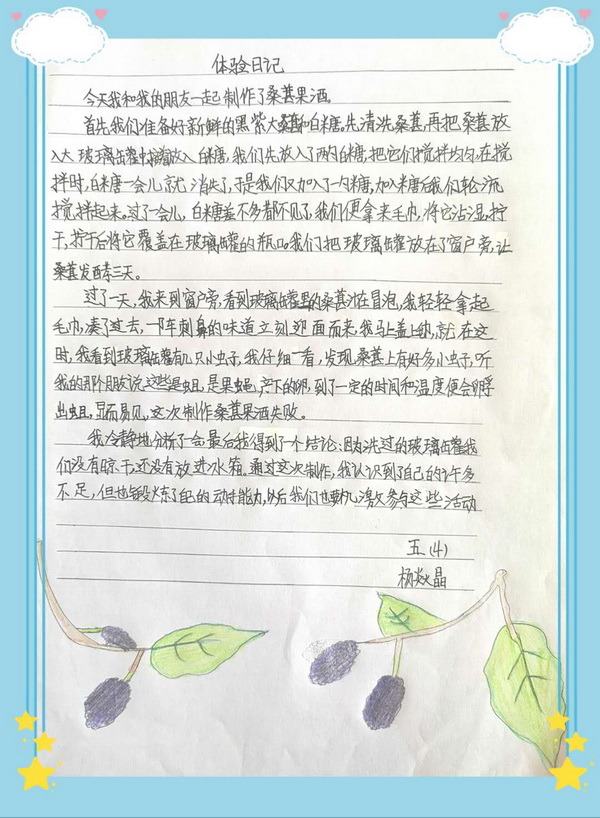 体验日记
今天我和我的朋友一起制作了桑葚果酒。
首先我们准备好新鲜的黑紫大桑葚和白糖。先清洗桑葚,再把桑葚放
入大玻璃罐中,放入白糖,我们先放入了两勺白糖,把它们搅拌均匀,在搅
拌时,白糖一会儿就消失了,于是我们又加入了一勺糖,加入糖后我们轮流
搅拌起来。过了一会儿,白糖差不多都不见了,我们便拿来毛巾,将它沾湿,拧
干,拧干后将它覆盖在玻璃罐的瓶口。我们把玻璃罐放在了窗户旁,让
桑葚发酵三天。
过了一天,我来到窗户旁,看到玻璃罐里的桑葚冰在冒泡,我轻轻拿起
毛巾,凑了过去,一阵刺鼻的味道立刻迎面而来,我马上盖上,就在这
时,我看到玻璃罐有几只小虫子,我仔细一看,发现桑葚上有好多小虫子,听
我的那个朋友说,这些是蛆,是果蝇产下的卵,到了一定的时间和温度便会孵
出蛆,显而易见,这次制作桑葚果酒失败。
我冷静地分析了一会,最后我得到了一个结论:因为洗过的玻璃罐我
们没有晾干,还没有放进冰箱。通过这次制作,我认识到了自己的许多
不足,但也锻炼了自己的动手能力,以后我们也要积极参与这些活动
五(4)
杨焱晶